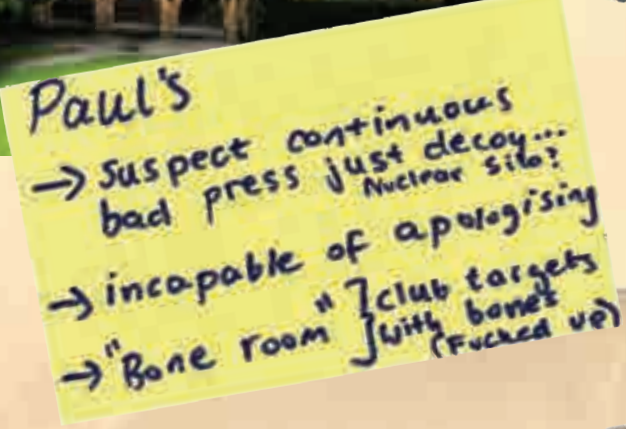 Paul's
→ suspect continuous
bad press just decoy...
Nuclear silo?
→ incapable of apologising
→ "Bone room" } club targets
with bones
(Fucked up)